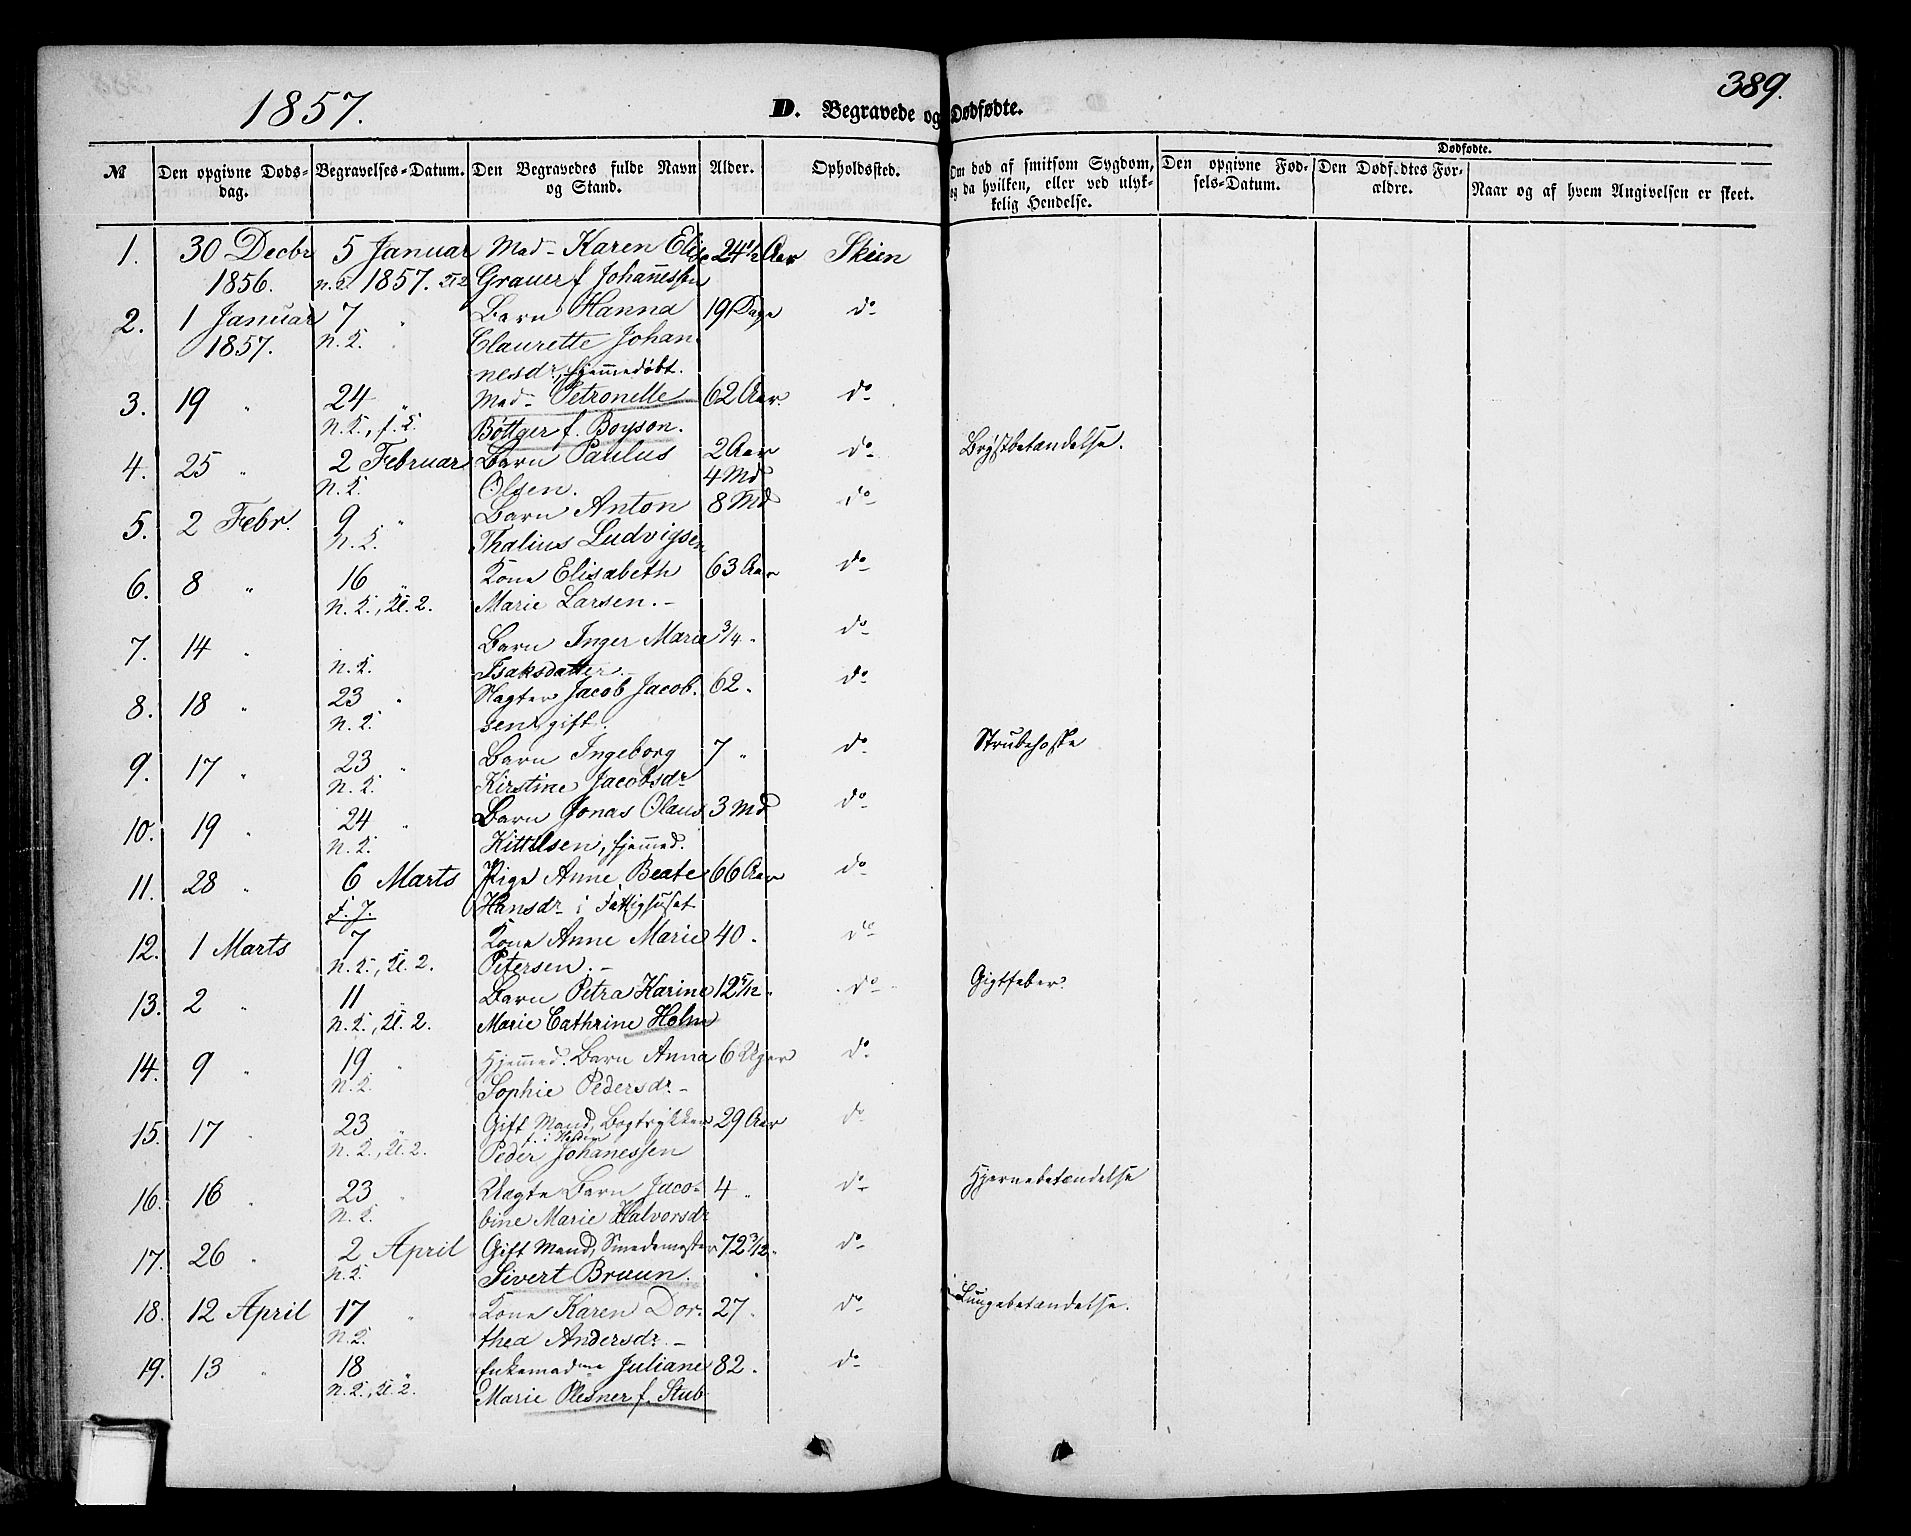 389.
1857.
D. Begravede og Dødfødte.
№
Den opgivne Døds-
dag.
Begravelses-Datum.
Den Begravedes fulde Navn
og Stand.
Alder.
Opholdssted.
Om død af smitsom Sygdom,
og da hvilken, eller ved ulyk-
kelig Hendelse.
Dødfødte.
Den opgivne Fød-
sels-Datum.
Den Dødfødtes For-
ældre.
Naar og af hvem Angivelsen er skeet.
1. 30 Decbr 5 Januar Mad- Karen Elise 24 1/2 Aar Skien
1856. 1857. Grauer f Johannessen
2. 1 Januar 7 " Barn Hanna 19 Dage do
1857. n. K. Claurette Johan-
nesdr, hjemmedøbt.
3. 19 " 24 " Mad- Petronelle 62 Aar. do
n. K., f. K. Böttger f. Boyson.
4. 25 " 2 Februar Barn Paulus 2 Aar do Brystbetændelse.
n. K. Olsen. 4 Md
5. 2 Febr. 9 " Barn Anton 8 Md do
n. K. Thalius Ludvigsen
6. 8 " 16 " Kone Elisabeth 63 Aar do
n. K., Kl. 2. Marie Larsen. -
7. 14 " Barn Inger Maria 3/4 " do
n. K. Isaksdatter.
8. 18 " 23 " Slagter Jacob Jacob- 62 " do
n. K. sen, gift.
9. 17 " 23 " Barn Ingeborg 7 " do Strubehoste
n. K. Kirstine Jacobsdr
10. 19 " 24 " Barn Jonas Olaus 3 Md do
n. K. Kittilsen, hjemmed.
11. 28 " 6 Marts Pige Anne Beate 66 Aar do
F. J. Hansdr i Fattighuset
12. 1 Marts 7 Kone Anne Marie 40 " do
n. K., Kl. 2. Petersen. -
13. 2 " 11 " Barn Petra Karine 12 5/12 " do Gigtfeber.
n. K., Kl. 2. Marie Cathrine Holm
14. 9 " 19 " Hjemmed. Barn Anna 6 Uger do
n. K. Sophie Pedersdr -
15. 17 " 23 " Gift Mand, Bogtrykker 29 Aar do
n. K., Kl. 2. Peder Johanessen
16. 16 " 23 " Uægte Barn Jaco- 4 " do Hjernebetændelse
n. K. bine Marie Halvorsdr
17. 26 " 2 April Gift Mand, Smedemester 72 3/12 " do
n. K. Sivert Bruun.
18. 12 April 17 " Kone Karen Dor- 27 " do Lungebetændelse.
n. K. thea Andersdr -
19. 13 " 18 " Enkemadme Juliane 82 " do
n. K., Kl. 2. Marie Plesner f. Stub